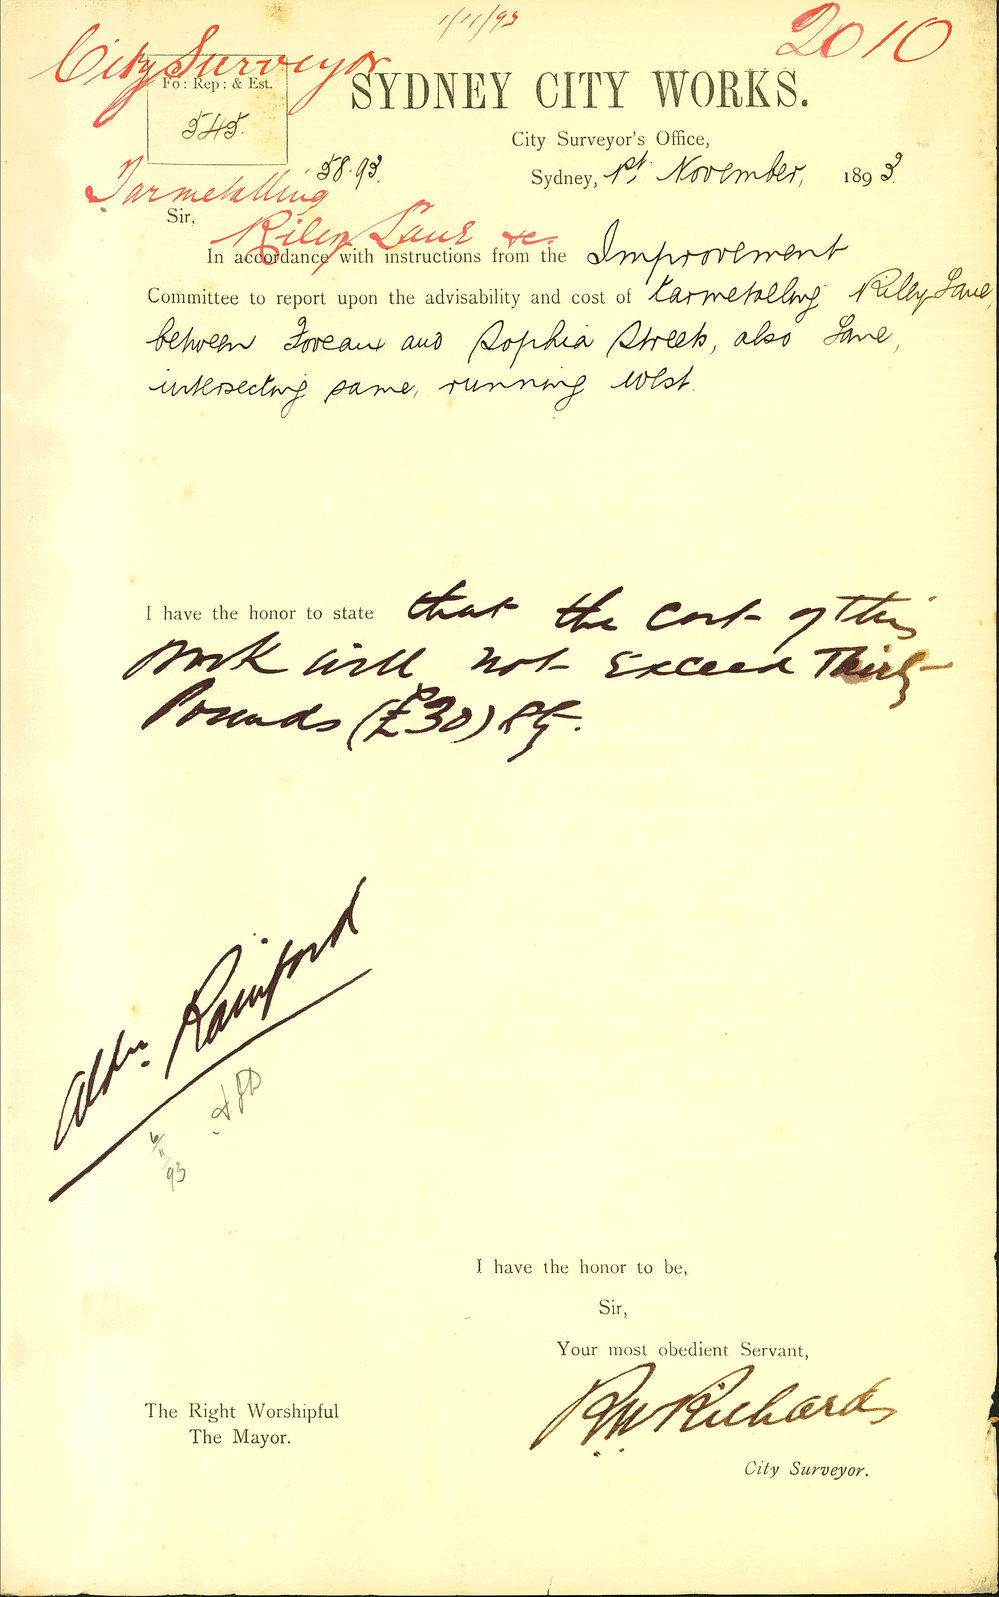 1/11/93
2010
City Surveyor
Fo: Rep: & Est.
545.
SYDNEY CITY WORKS.
City Surveyor's Office,
58.93.
Sydney, 1st. November, 1893.
Tarmetalling
Riley Lane &c.
Sir,
In accordance with instructions from the Improvement
Committee to report upon the advisability and cost of tarmetalling Riley Lane,
between Foveaux and Sophia Streets, also Lane,
intersecting same, running West.
I have the honor to state that the cost of this
work will not exceed Thirty
Pounds (£30)
Aldn. Rainford
6/11/93
I have the honor to be,
Sir,
Your most obedient Servant,
RW Richards
City Surveyor.
The Right Worshipful
The Mayor.